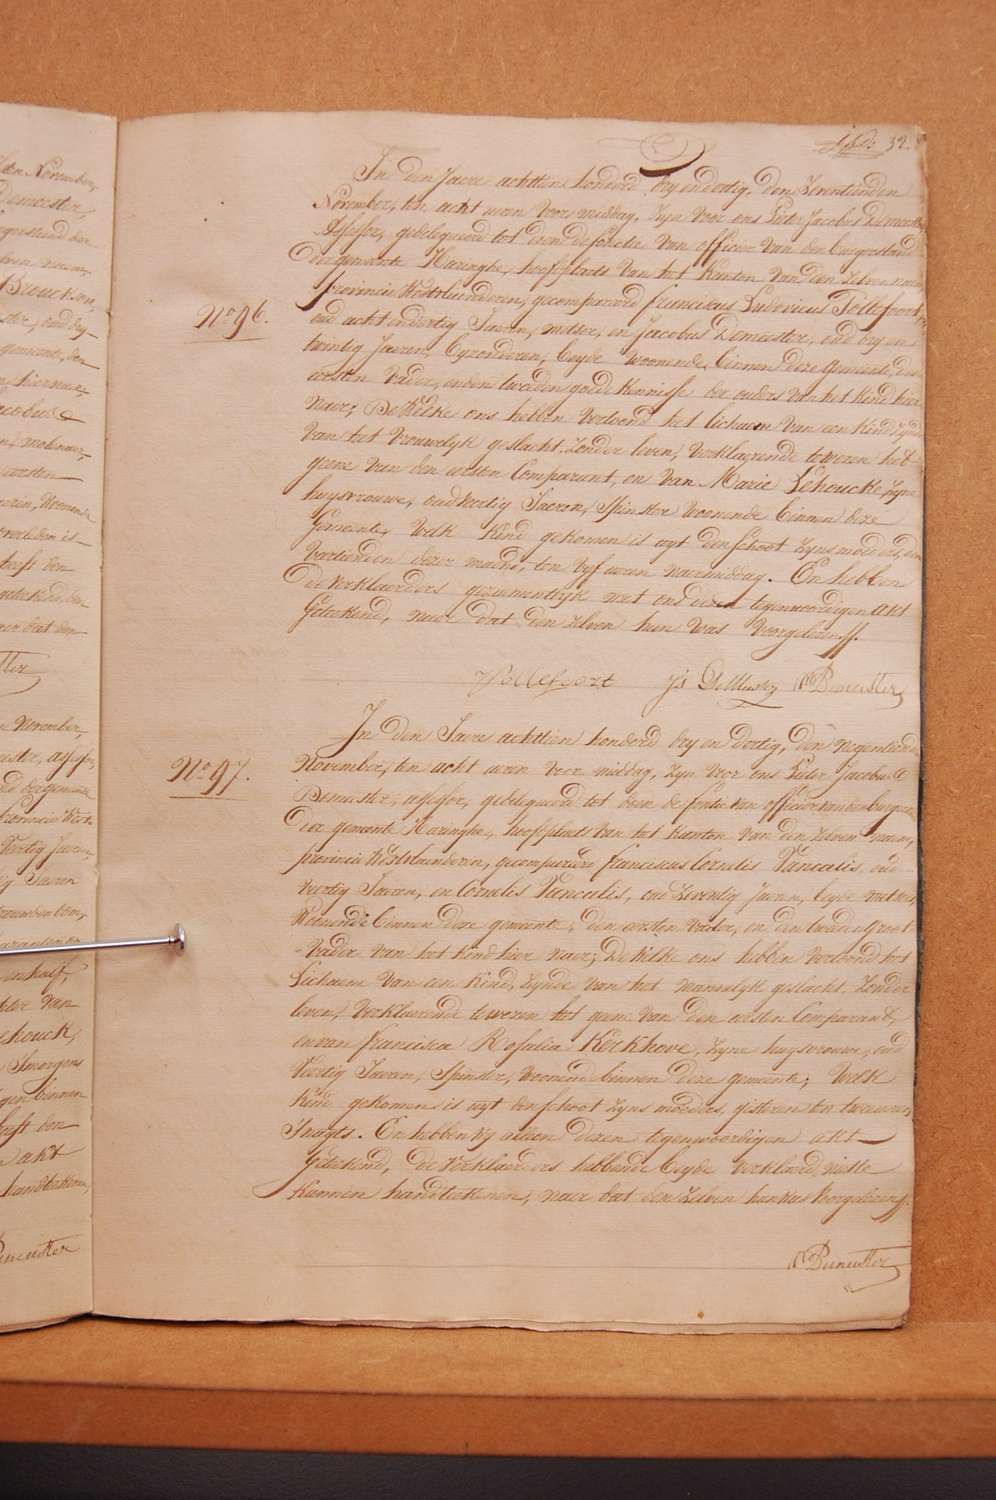 32.
In den Jaere achttien honderd dry en dertig, den zeventienden
November, ten acht uren voormiddag, zyn voor ons Pieter Jacobus Demeester
Assessor, gedelegueerd tot doen de fonctie van officier van den burgerstand
der gemeente Haringhe, hoofdplaets van het Kanton van den zelven naem,
provincie Westvlaenderen, gecompareerd Franciscus Ludovicus Tollefoort
oud acht en dertig Jaeren, wever, en Jacobus Demeester, oud dry en
twintig Jaeren, byzonderen, beyde woonende binnen deze gemeente, den
eersten vader, en den tweeden goede kennisse der ouders van het kind hier
naer; De Welke ons hebben vertoond het lichaem van een Kind zynde
van het vrouwelyk geslacht, zonder leven, verklaerende te wezen het
geene van den eersten Comparant, en van Marie Lehoucke zyne
huysvrouwe, oud veertig Jaeren, spinster woonende binnen deze
Gemeente, welk Kind gekomen is uyt den schoot zyns moeders, den
veertienden dezer maend, ten vyf uren naermiddag. En hebben
de verklaerders gezamentlyk met ons dezen tegenwoordigen akt
Geteekend, naer dat den zelven hun was voorgelezen.
N.º 96.
Tollefoort Js Demeester Demeester
In den Jaere achttien honderd dry en dertig, den negentienden
N.º 97.
November, ten acht uren voor middag, zyn voor ons Pieter Jacobus
Demeester, assessor, gedelegueerd tot doen de fonctie van officier van den burgerstand
der gemeente Haringhe, hoofdplaets van het kanton van den zelven naem,
provincie Westvlaenderen, gecompareerd Franciscus Cornelis Vancalis, oud
veertig Jaeren, en Cornelis Vancalis, oud zeventig Jaeren, beyde wevers,
Woonende binnen deze gemeente, den eersten vader, en den tweeden groot
-vader van het kind hier naer; De Welke ons hebben vertoond het
Lichaem van een Kind, zynde van het mannelyk geslacht, zonder
leven, verklaerende te wezen het geene van den eersten Comparant,
en van Francisca Rosalia Kerkhove, zyne huysvrouwe, oud
veertig Jaeren, spinster, woonende binnen deze gemeente; welk
Kind gekomen is uyt den schoot zyns moeders, gisteren ten twee uren
snagts. En hebben wy alleen dezen tegenwoordigen akt
Geteekend, de verklaerders hebbende beyde verklaerd niet te
kunnen handteekenen, naer dat den zelven hun was voorgelezen.
Demeester